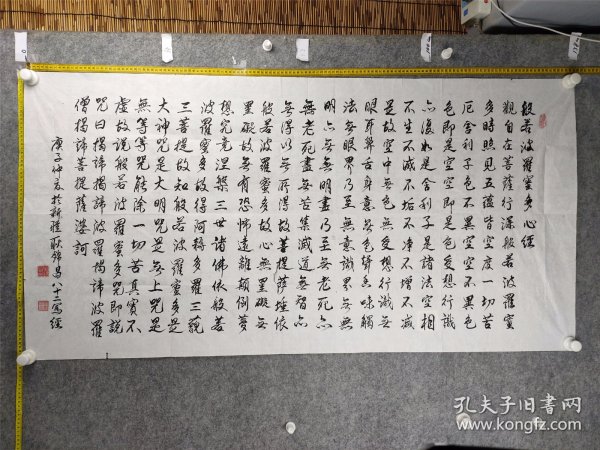 般若波羅蜜多心經
觀自在菩薩行深般若波羅蜜
多時照見五蘊皆空度一切苦
厄舍利子色不異空空不異色
色即是空空即是色受想行識
亦復如是舍利子是諸法空相
不生不滅不垢不淨不增不減
是故空中無色無受想行識無
眼耳鼻舌身意無色聲香味觸
法無眼界乃至無意識界無無
明亦無無明盡乃至無老死亦
無老死盡無苦集滅道無智亦
無得以無所得故菩提薩埵依
般若波羅蜜多故心無罣礙無
罣礙故無有恐怖遠離顛倒夢
想究竟涅槃三世諸佛依般若
波羅蜜多故得阿耨多羅三藐
三菩提故知般若波羅蜜多是
大神咒是大明咒是無上咒是
無等等咒能除一切苦真實不
虛故說般若波羅蜜多咒即說
咒曰揭諦揭諦波羅揭諦波羅
僧揭諦菩提薩婆訶
庚子仲於新耿錦昌八十二寫經
孔夫子旧书网